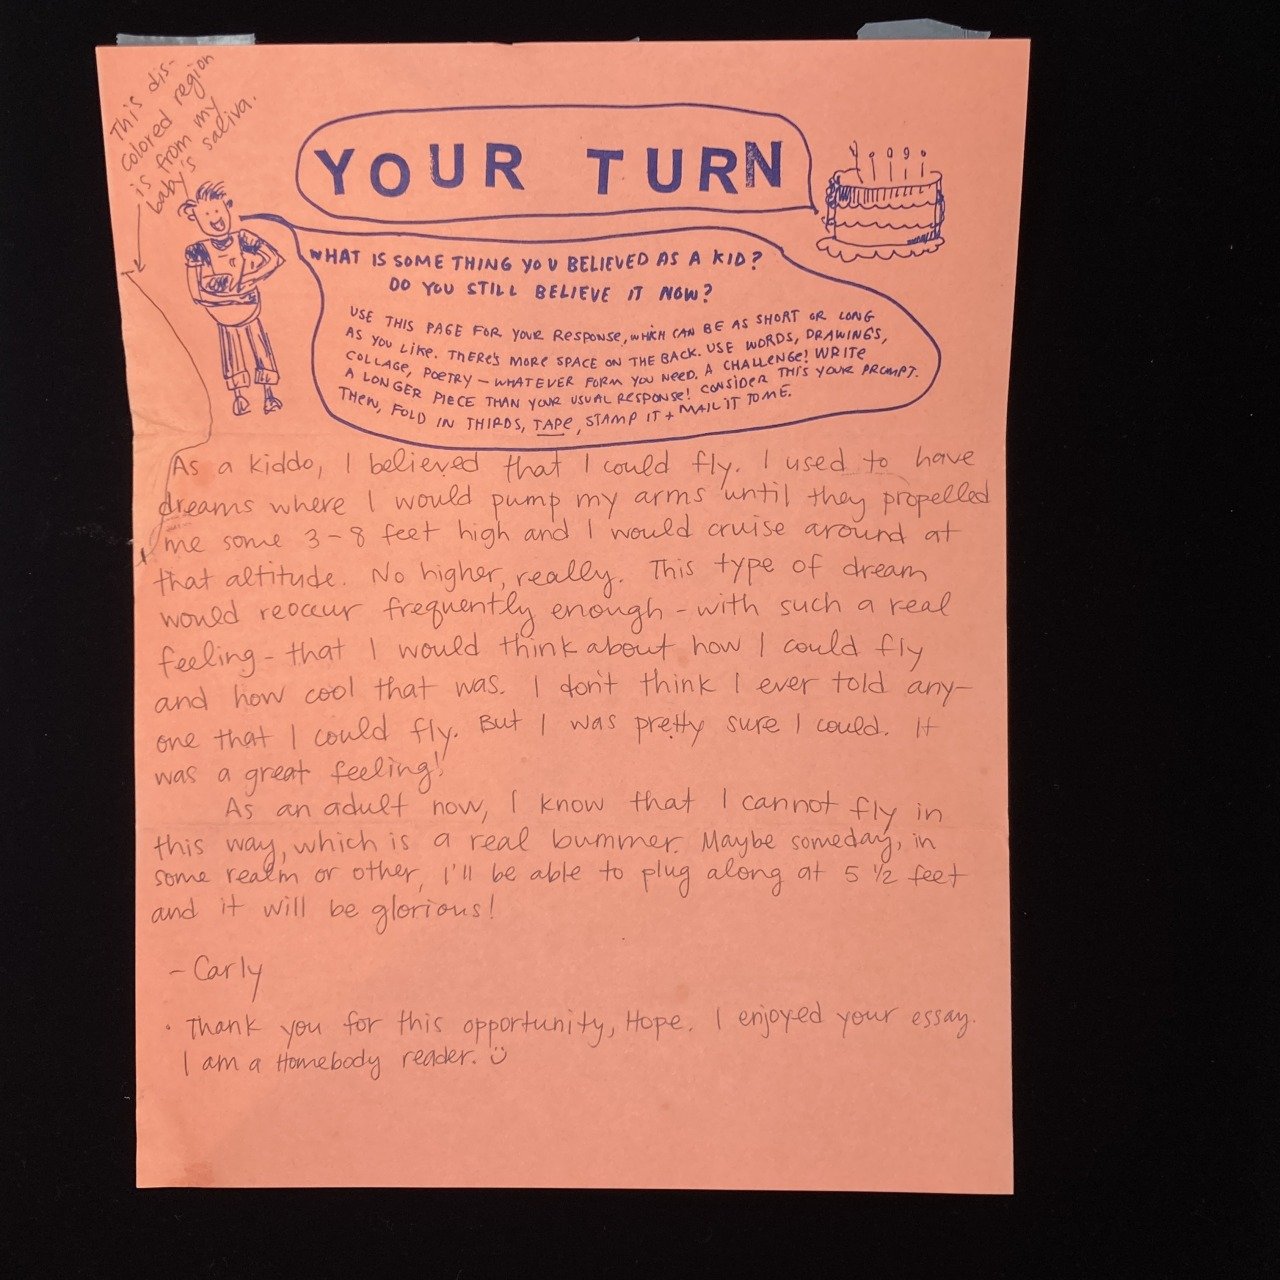 This dis-
colored region
is from my
baby's saliva.
YOUR TURN
WHAT IS SOMETHING YOU BELIEVED AS A KID?
DO YOU STILL BELIEVE IT NOW?
USE THIS PAGE FOR YOUR RESPONSE, WHICH CAN BE AS SHORT OR LONG
AS YOU LIKE. THERE'S MORE SPACE ON THE BACK. USE WORDS, DRAWINGS,
COLLAGE, POETRY – WHATEVER FORM YOU NEED. A CHALLENGE! WRITE
A LONGER PIECE THAN YOUR USUAL RESPONSE! CONSIDER THIS YOUR PROMPT.
THEN, FOLD IN THIRDS, TAPE, STAMP IT + MAIL IT TO ME.
As a kiddo, I believed that I could fly. I used to have
dreams where I would pump my arms until they propelled
me some 3-8 feet high and I would cruise around at
that altitude. No higher, really. This type of dream
would reoccur frequently enough - with such a real
feeling - that I would think about how I could fly
and how cool that was. I don't think I ever told any-
one that I could fly. But I was pretty sure I could. It
was a great feeling!
As an adult now, I know that I cannot fly in
this way, which is a real bummer. Maybe someday, in
some realm or other, I'll be able to plug along at 5 1/2 feet
and it will be glorious!
- Carly
• Thank you for this opportunity, Hope. I enjoyed your essay.
I am a Homebody reader. ☺